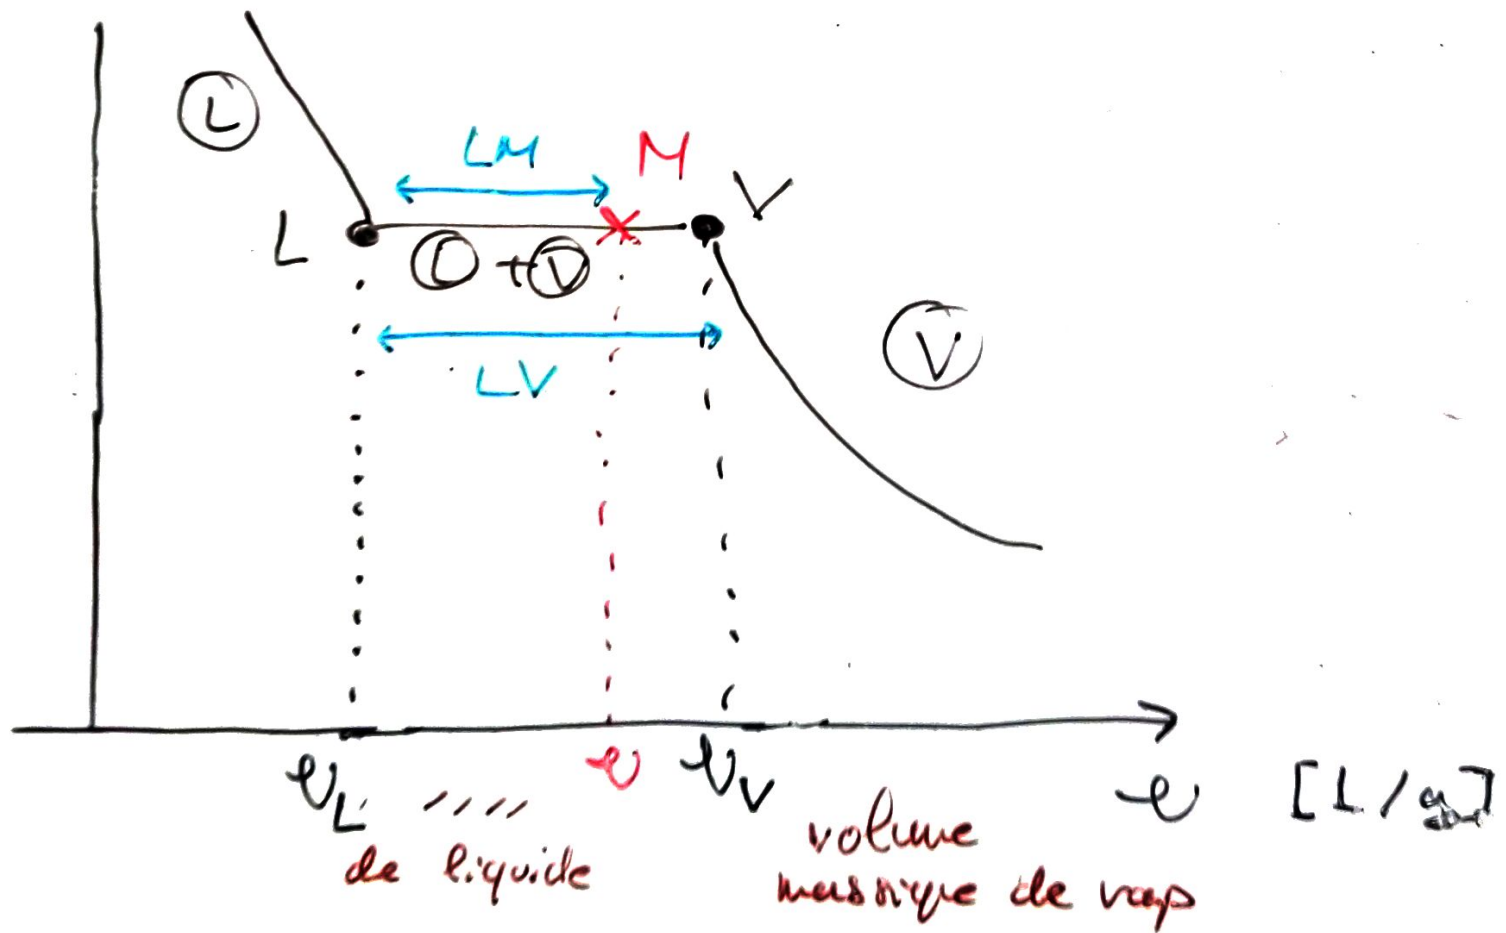 L
LM
M
V
L
L + V
LV
V
v_L
v
v_V
v [L/g]
〃〃
de liquide
volume
massique de vap